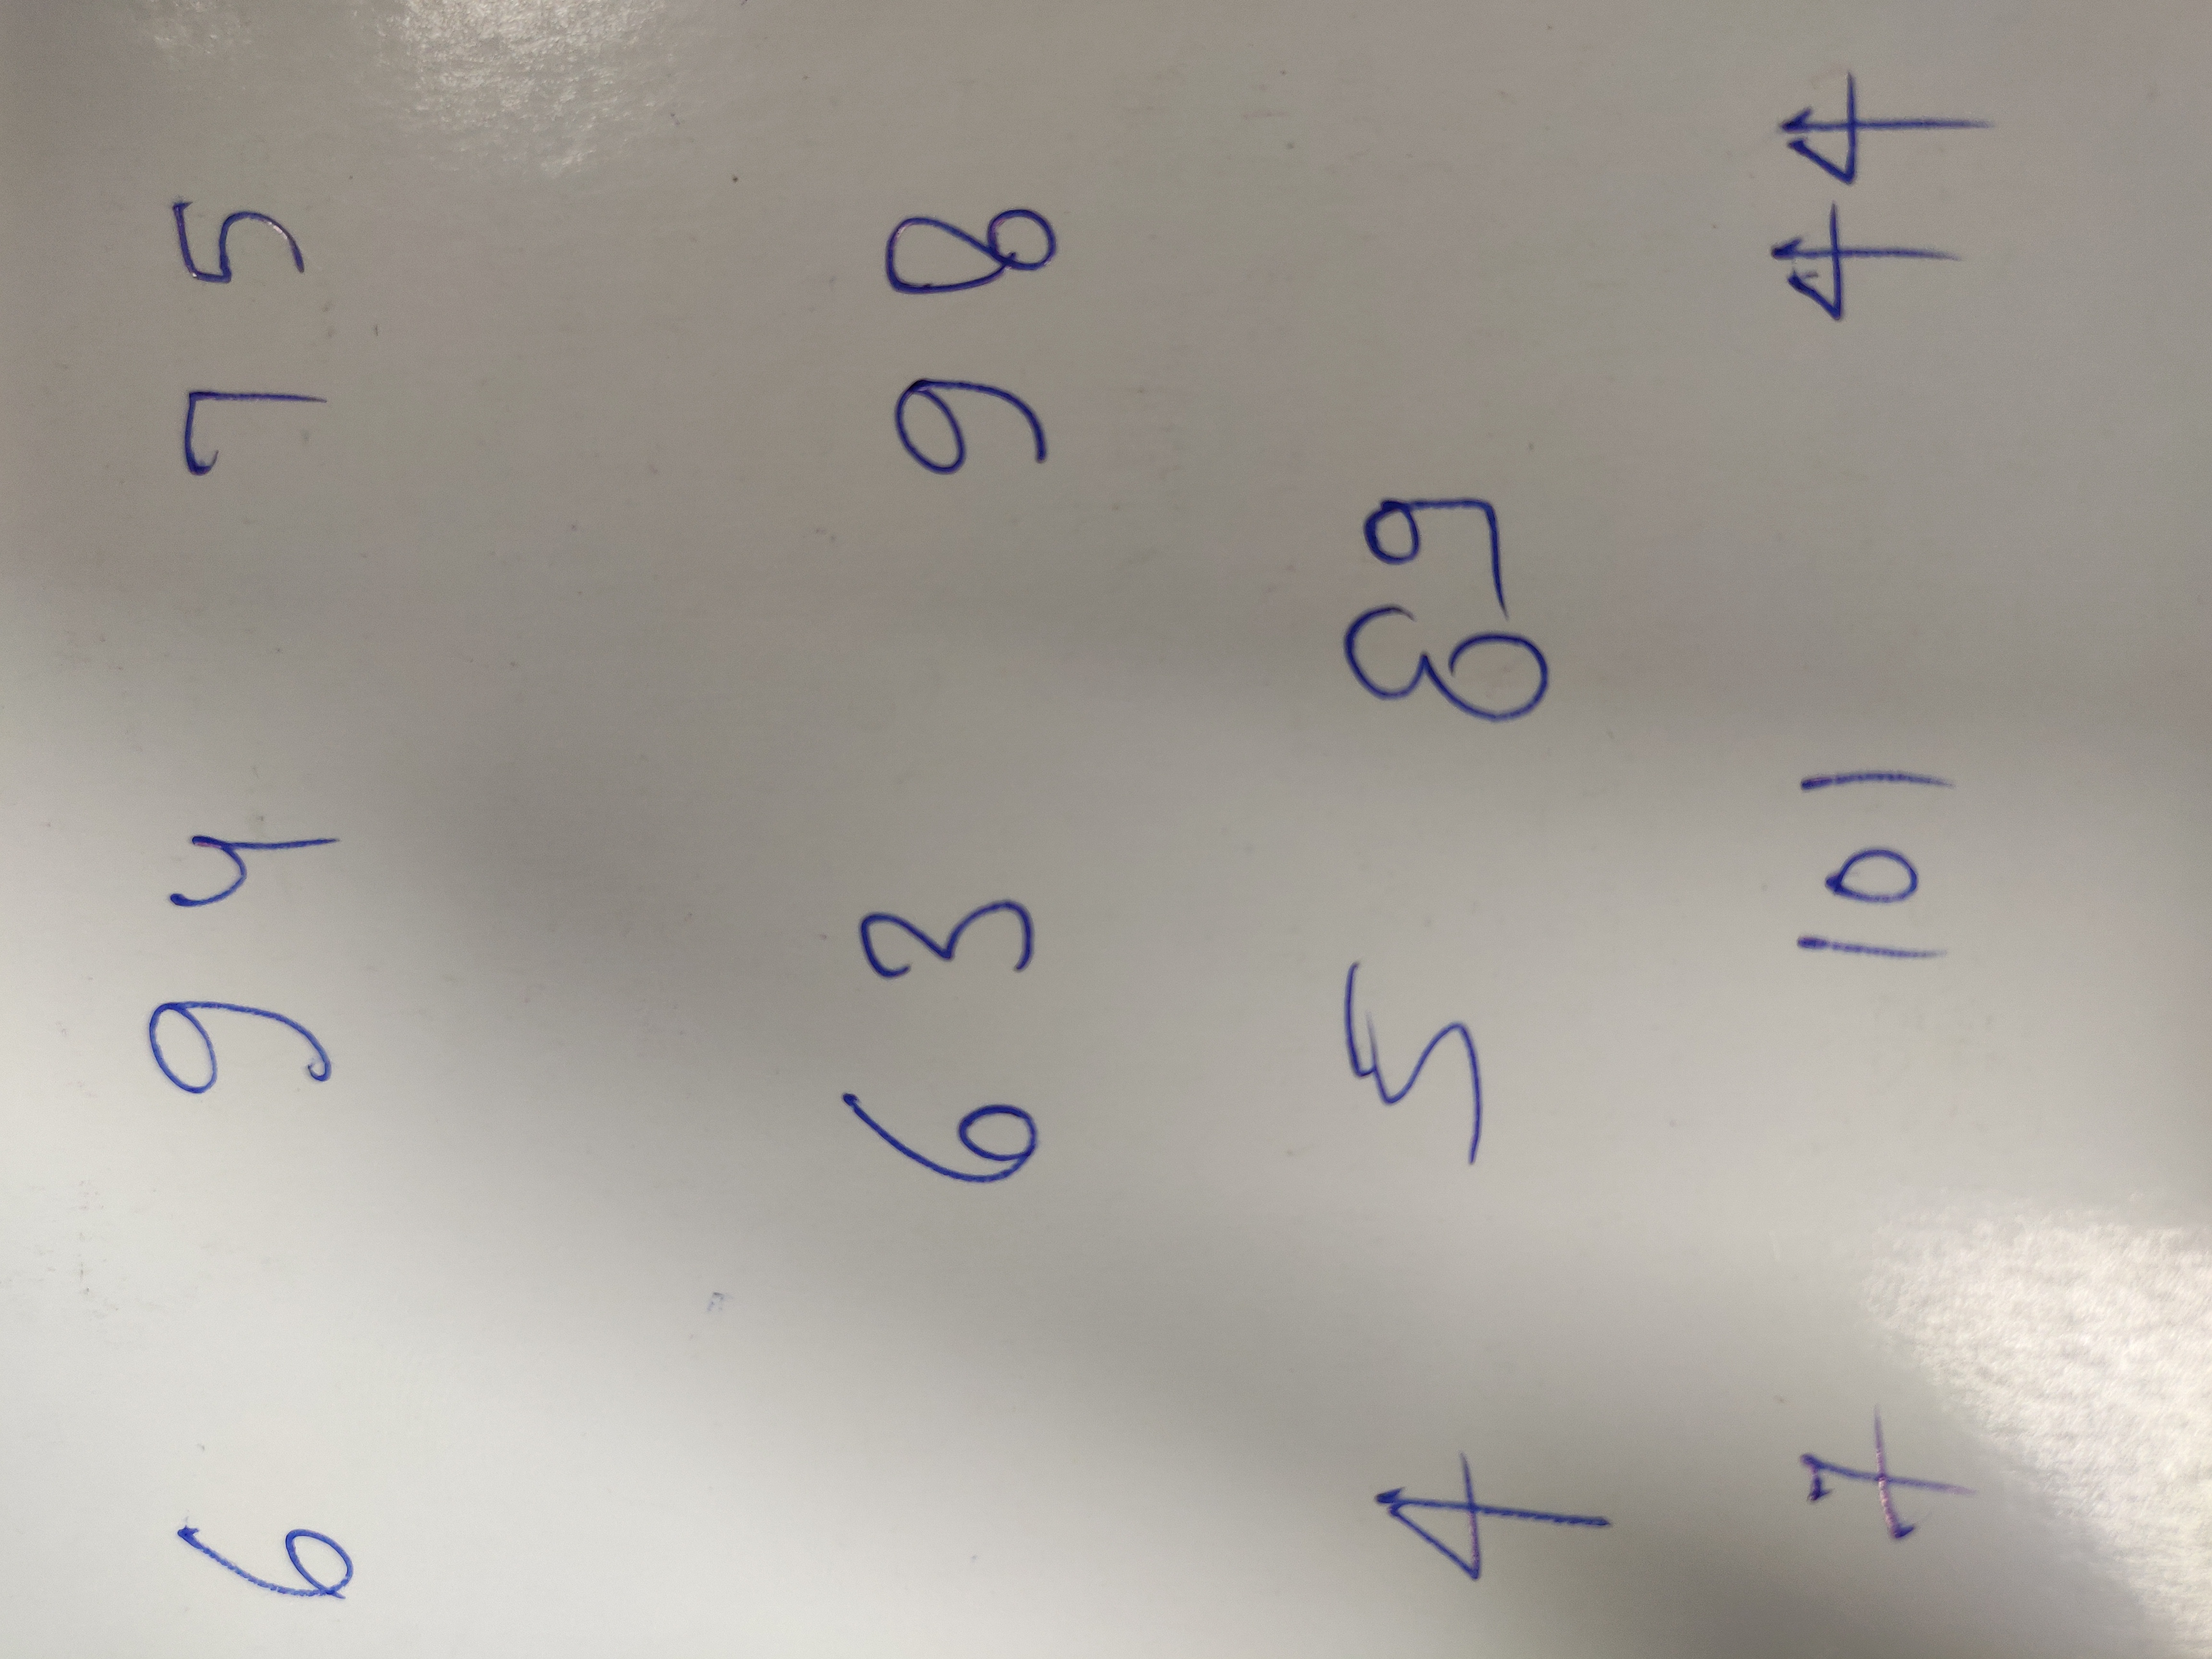 6 94 75
63 98
4 5 89
7 101 44